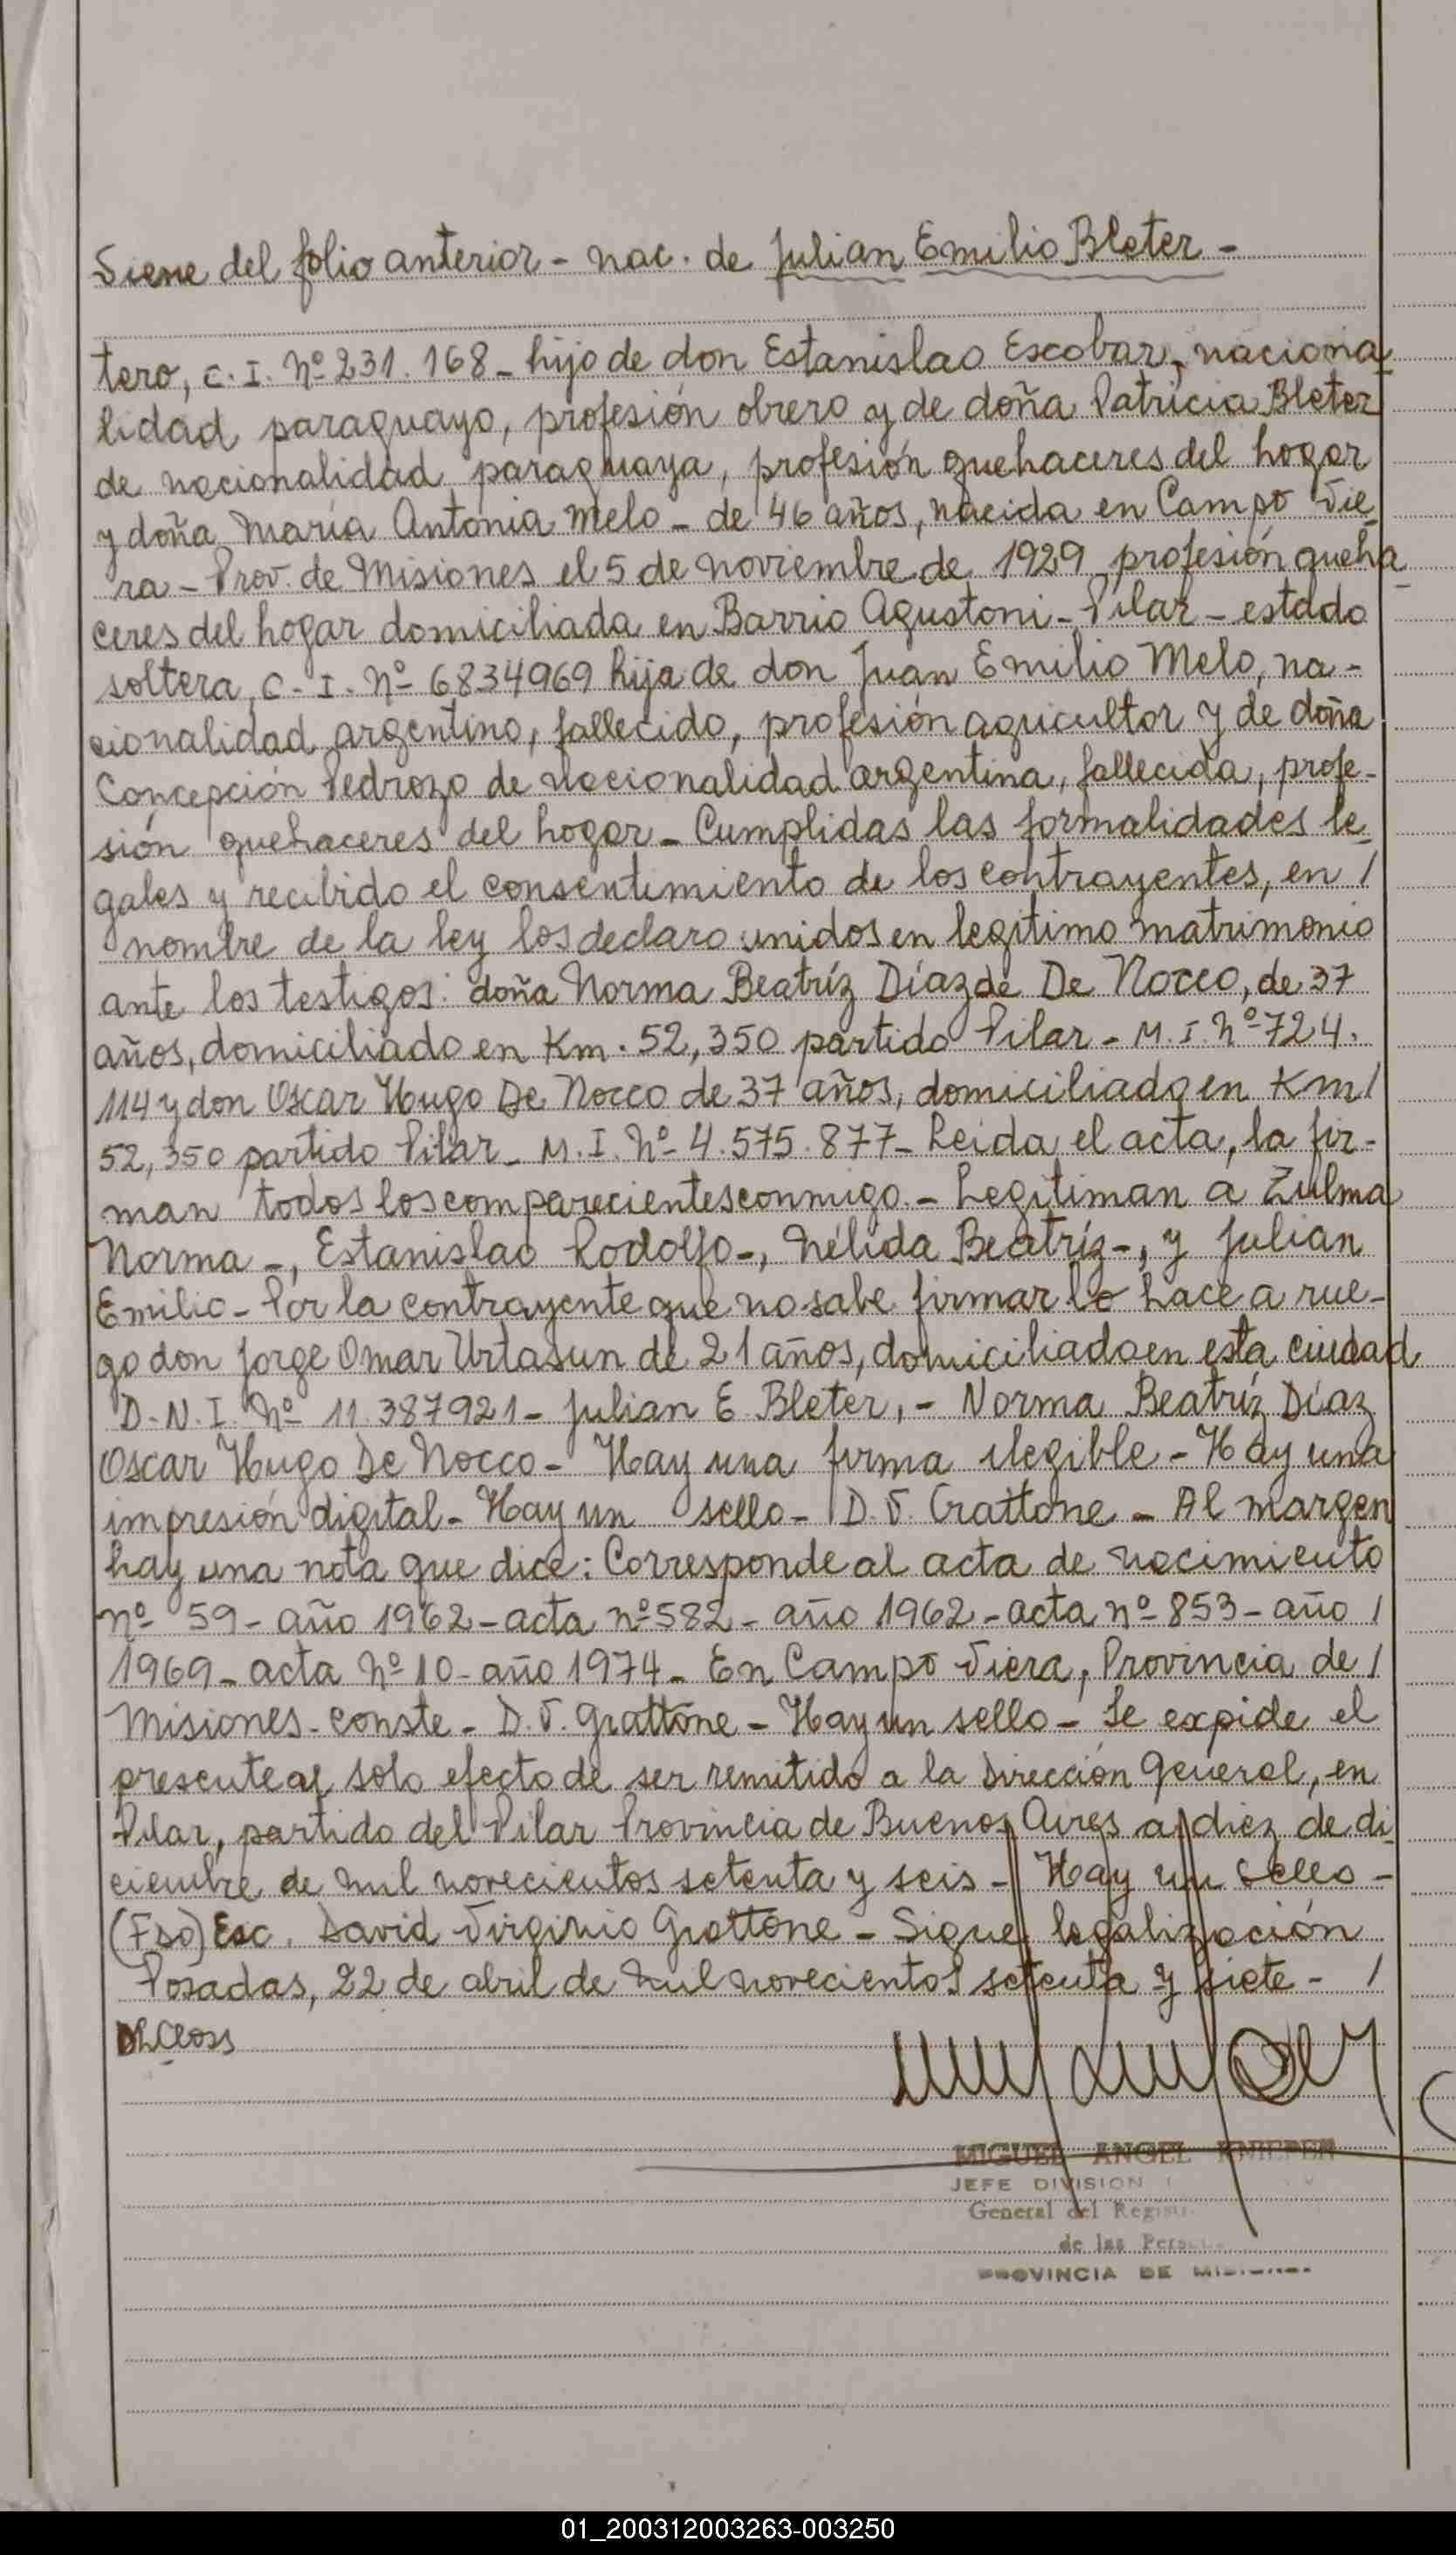 Viene del folio anterior - nac. de Julian Emilio Bleter -
tero, C.I. Nº 231.168 - hijo de don Estanislao Escobar, naciona
lidad paraguayo, profesión obrero y de doña Patricia Bleter
de nacionalidad paraguaya, profesión quehaceres del hogar
y doña María Antonia Melo - de 46 años, nacida en Campo Vie
ra - Prov. de Misiones el 5 de noviembre de 1929 profesión queha
ceres del hogar domiciliada en Barrio Agustoni - Pilar - estado
soltera, C.I. Nº 6834969 hija de don Juan Emilio Melo, na-
cionalidad argentino, fallecido, profesión agricultor y de doña
Concepción Pedrozo de nacionalidad argentina, fallecida, profe-
sión quehaceres del hogar - Cumplidas las formalidades le
gales y recibido el consentimiento de los contrayentes, en /
nombre de la ley los declaro unidos en legítimo matrimonio
ante los testigos: doña Norma Beatríz Díaz de De Nocco, de 37
años, domiciliado en Km. 52,350 partido Pilar - M.I. Nº 724.
114 y don Oscar Hugo De Nocco de 37 años, domiciliado en Km /
52,350 partido Pilar - M.I. Nº 4.575.877 - Leída el acta, la fir-
man todos los comparecientes conmigo. - Legitiman a Zulma
Norma -, Estanislao Rodolfo -, Nélida Beatríz -, y Julian
Emilio - Por la contrayente que no sabe firmar lo hace a rue-
go don Jorge Omar Urtasun de 21 años, domiciliado en esta ciudad
D.N.I. Nº 11.387921 - Julian E. Bleter, - Norma Beatríz Díaz
Oscar Hugo De Nocco - Hay una firma ilegible - Hay una
impresión digital - Hay un sello - D.V. Grattone - Al margen
hay una nota que dice: Corresponde al acta de nacimiento
nº 59 - año 1962 - acta nº 582 - año 1962 - acta nº 853 - año /
1969 - acta Nº 10 - año 1974 - En Campo Viera, Provincia de /
Misiones - conste - D.V. Grattone - Hay un sello - Se expide el
presente al solo efecto de ser remitido a la Dirección General, en
Pilar, partido del Pilar Provincia de Buenos Aires a diez de di
ciembre de mil novecientos setenta y seis - Hay un sello -
(Fdo) Esc. David Virginio Grattone - Sigue legalización
Posadas, 22 de abril de mil novecientos setenta y siete - /
MIGUEL ANGEL KNIEPER
JEFE DIVISION
General del Regist
de las Perso
PROVINCIA DE MISIONES
01_200312003263-003250